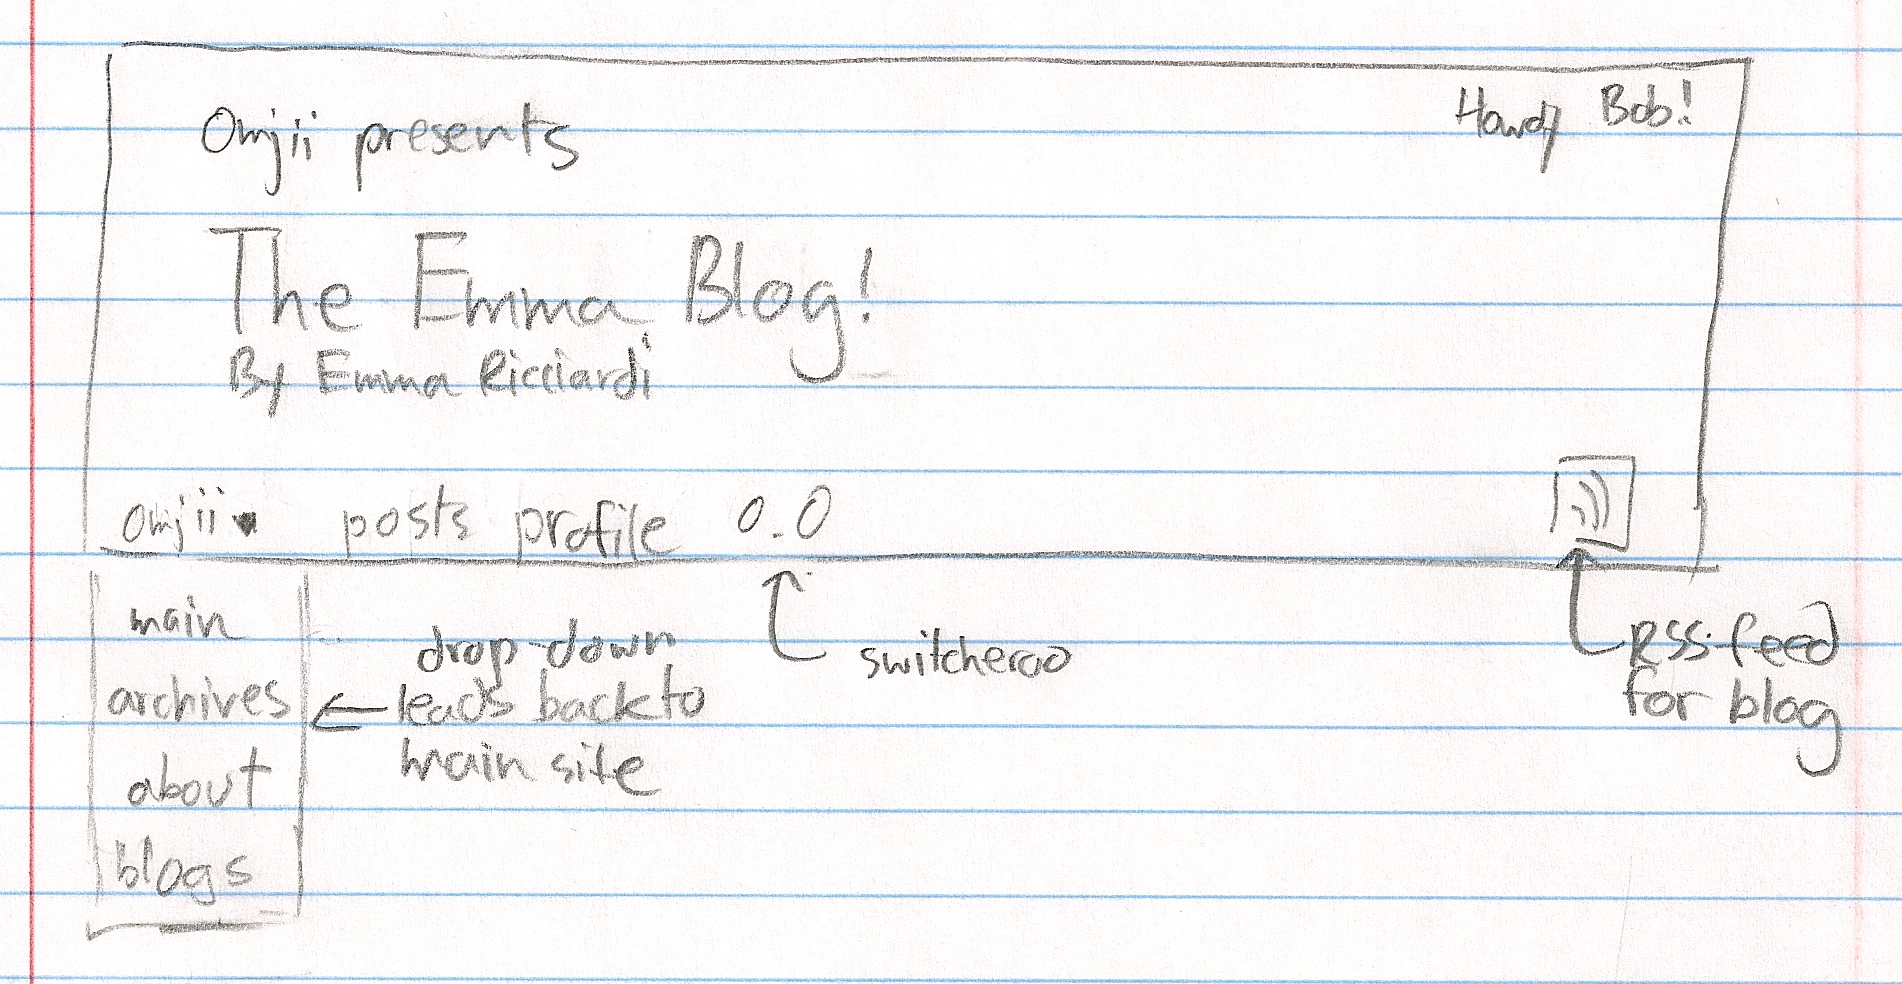 Omjii presents
Howdy Bob!
The Emma Blog!
By Emma Ricciardi
omjii posts profile o.O
main
archives
about
blogs
drop-down
leads back to
main site
switcheroo
RSS feed
for blog